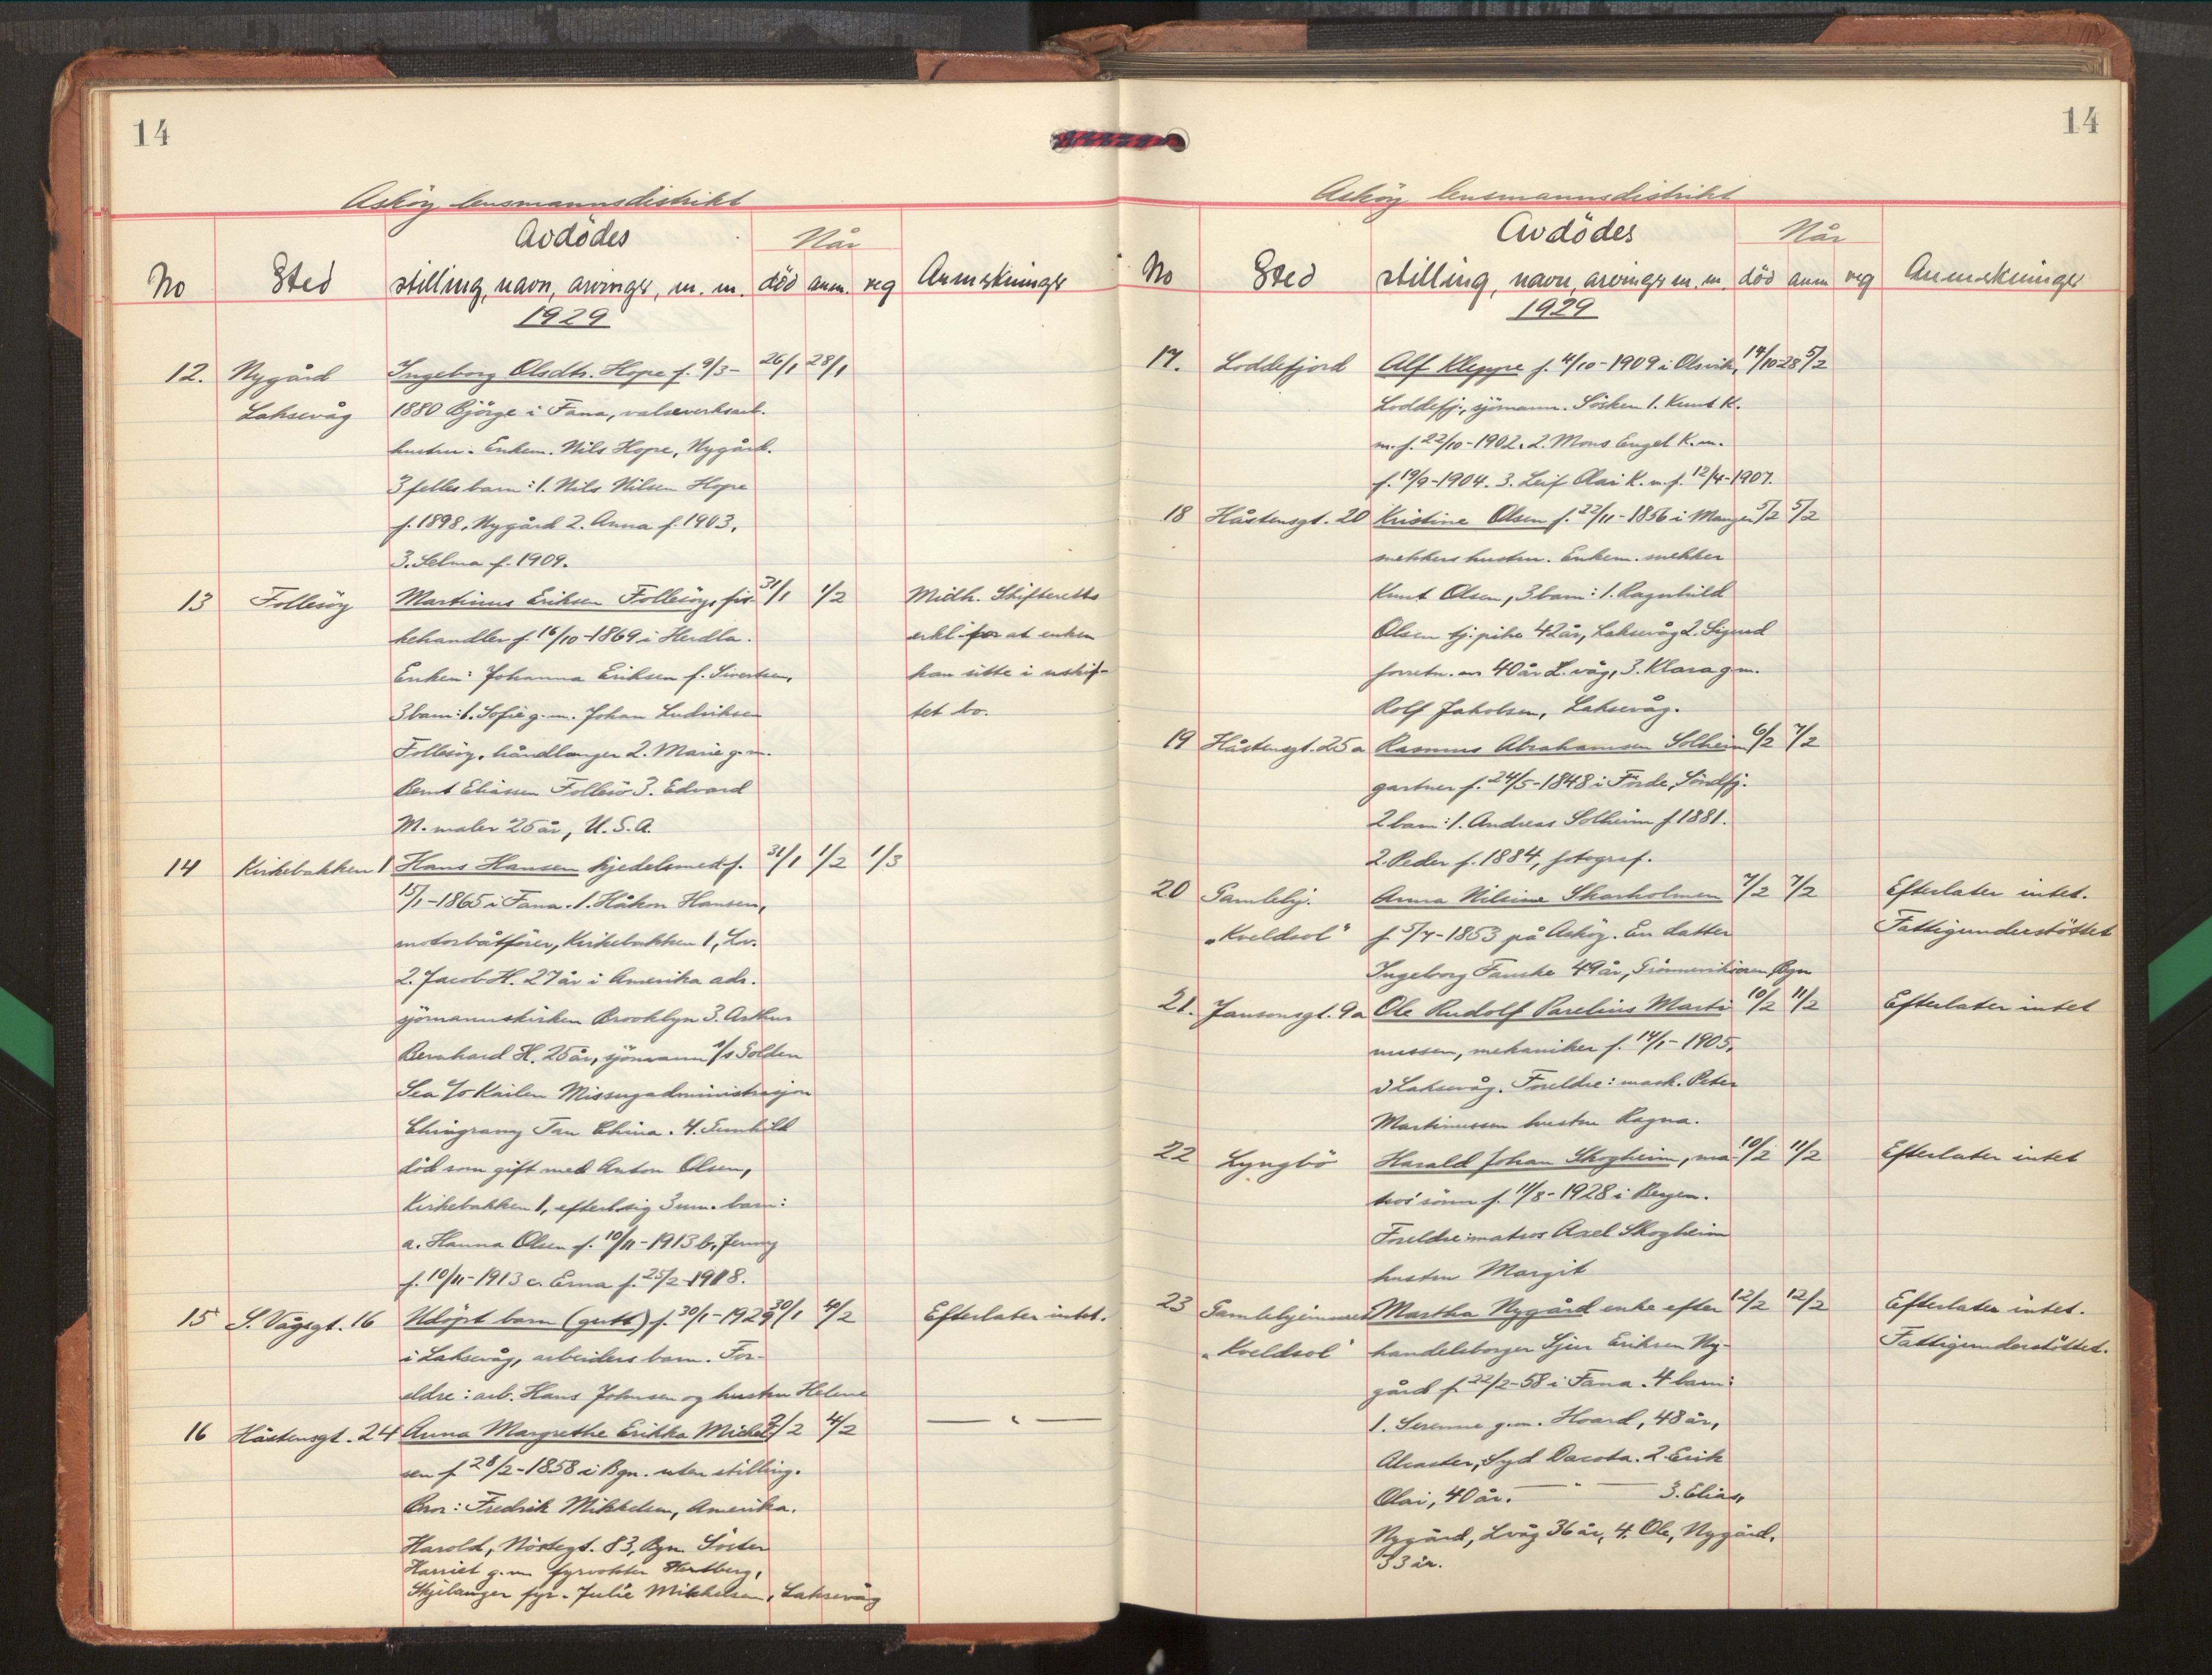 14
Askøy lensmannsdistrikt
Avdödes
Når
No Sted stilling, navn, arvinger, m. m. död anm. reg Anmerkninger
1929
12. Nygård Ingeborg Olsdtr. Hope f. 9/3- 26/1 28/1
Laksevåg 1880 Björge i Fana, valseverksarb.
hustru. Enkem. Nils Hope, Nygård.
3 felles barn: 1. Nils Nilsen Hope
f. 1898, Nygård 2. Anna f. 1903.
3. Selma f. 1909.
13 Follesöy Martinus Eriksen Follesöy, fis- 31/1 1/2 Midh. Skifteretts
kehandler f. 16/10-1869 i Herdla. erkl for at enken
Enken: Johanna Eriksen f. Sivertsen, kan sitte i uskif-
3 barn: 1. Sofie g. m. Johan Ludviksen tet bo.
Follesöy, håndlanger 2. Marie g. m.
Bernt Eliassen Follesö 3. Edvard
M. maler 25 år, U. S. A.
14 Kirkebakken 1 Hans Hansen kjedelsmed f. 31/1 1/2 1/3
15/1-1865 i Fana. 1. Håkon Hansen,
motorbåtförer, Kirkebakken 1, Lv.
2. Jacob H. 27 år i Amerika adr.
sjömannskirken Brooklyn 3. Arthur
Bernhard H. 25 år, sjömann s/s Golden
Sea c/o Kailen Missugadministrasjon
Tan China. 4. Gunhild
död som gift med Anton Olsen,
Kirkebakken 1, efterl. sig 3 um. barn:
a. Hanna Olsen f. 10/11-1913 b. Jenny
f. 10/11-1913 c. Erna f. 25/2-1918.
15 S. Vågsgt. 16 Udöpt barn (gutt) f. 30/1-1929 30/1 4/2 Efterlater intet.
i Laksevåg, arbeiders barn. For-
eldre: arb. Hans Johnsen og hustru Helene
16 Håstensgt. 24 Anna Margrethe Erikka Mickel- 2/2 4/2 — " —
sen f. 28/2-1858 i Bgn. uten stilling.
Bror: Fredrik Mikkelsen, Amerika.
Harold, Nöstegt. 83, Bgn. Söster
Harriet g. m. fyrvokter Hertberg,
Skjelanger fyr. Julie Mikkelsen, Laksevåg
14
Askøy lensmannsdistrikt
Avdödes
Når
No Sted stilling, navn, arvinger m. m. död anm reg Anmerkninger
1929
17. Loddefjord Alf Kleppe f. 4/10-1909 i Olsvik, 14/10-28 5/2
Loddefj., sjömann. Sösken 1. Knut K.
m. f. 22/10-1902. 2. Mons Engel K. m.
f. 19/9-1904. 3. Leif Olai K. m. f. 12/4-1907.
18 Håstensgt. 20 Kristine Olsen f. 22/11-1856 i Manger 5/2 5/2
snekkers hustru. Enkem. snekker
Knut Olsen, 3 barn: 1. Ragnhild
Olsen tj. pike 42 år, Laksevåg 2. Sigurd
forretn. m 40 år L.våg, 3. Klara g. m.
Rolf Jakobsen, Laksevåg.
19 Håstensgt. 25 a Rasmus Abrahamsen Solheim 6/2 7/2
gartner f. 24/5-1848 i Förde, Söndfj.
2 barn: 1. Andreas Solheim f 1881.
2. Peder f. 1884, fotograf.
20 Gamlehj. Anna Nilsine Skarholmen 7/2 7/2 Efterlater intet.
"Kveldsol" f. 5/7-1853 på Askøy. En datter Fattigunderstöttet
Ingeborg Fauske 49 år, Bgn
21. Jansonsgt. 9 a Ole Rudolf Parelius Marti- 10/2 11/2 Efterlater intet
nussen, mekaniker f. 14/1-1905.
i Laksevåg. Foreldre: mask. Peter
Martinussen hustru Ragna.
22 Lyngbö Harald Johan Skogheim, ma- 10/2 11/2 Efterlater intet
tros' sönn f. 11/8-1928 i Bergen.
Foreldre: matros Axel Skogheim
hustru Margit
23 Gamlehjemmet Martha Nygård enke efter 12/2 12/2 Efterlater intet.
"Kveldsol" handelsborger Sjur Eriksen Ny- Fattigunderstöttet.
gård f. 22/2-58 i Fana. 4 barn:
1. Serenne g. m. Hoard, 48 år,
Alcaster, Syd Dacota. 2. Erik
Olai, 40 år. — " — 3. Elias,
Nygård, Lvåg 36 år, 4. Ole, Nygård.
33 år.